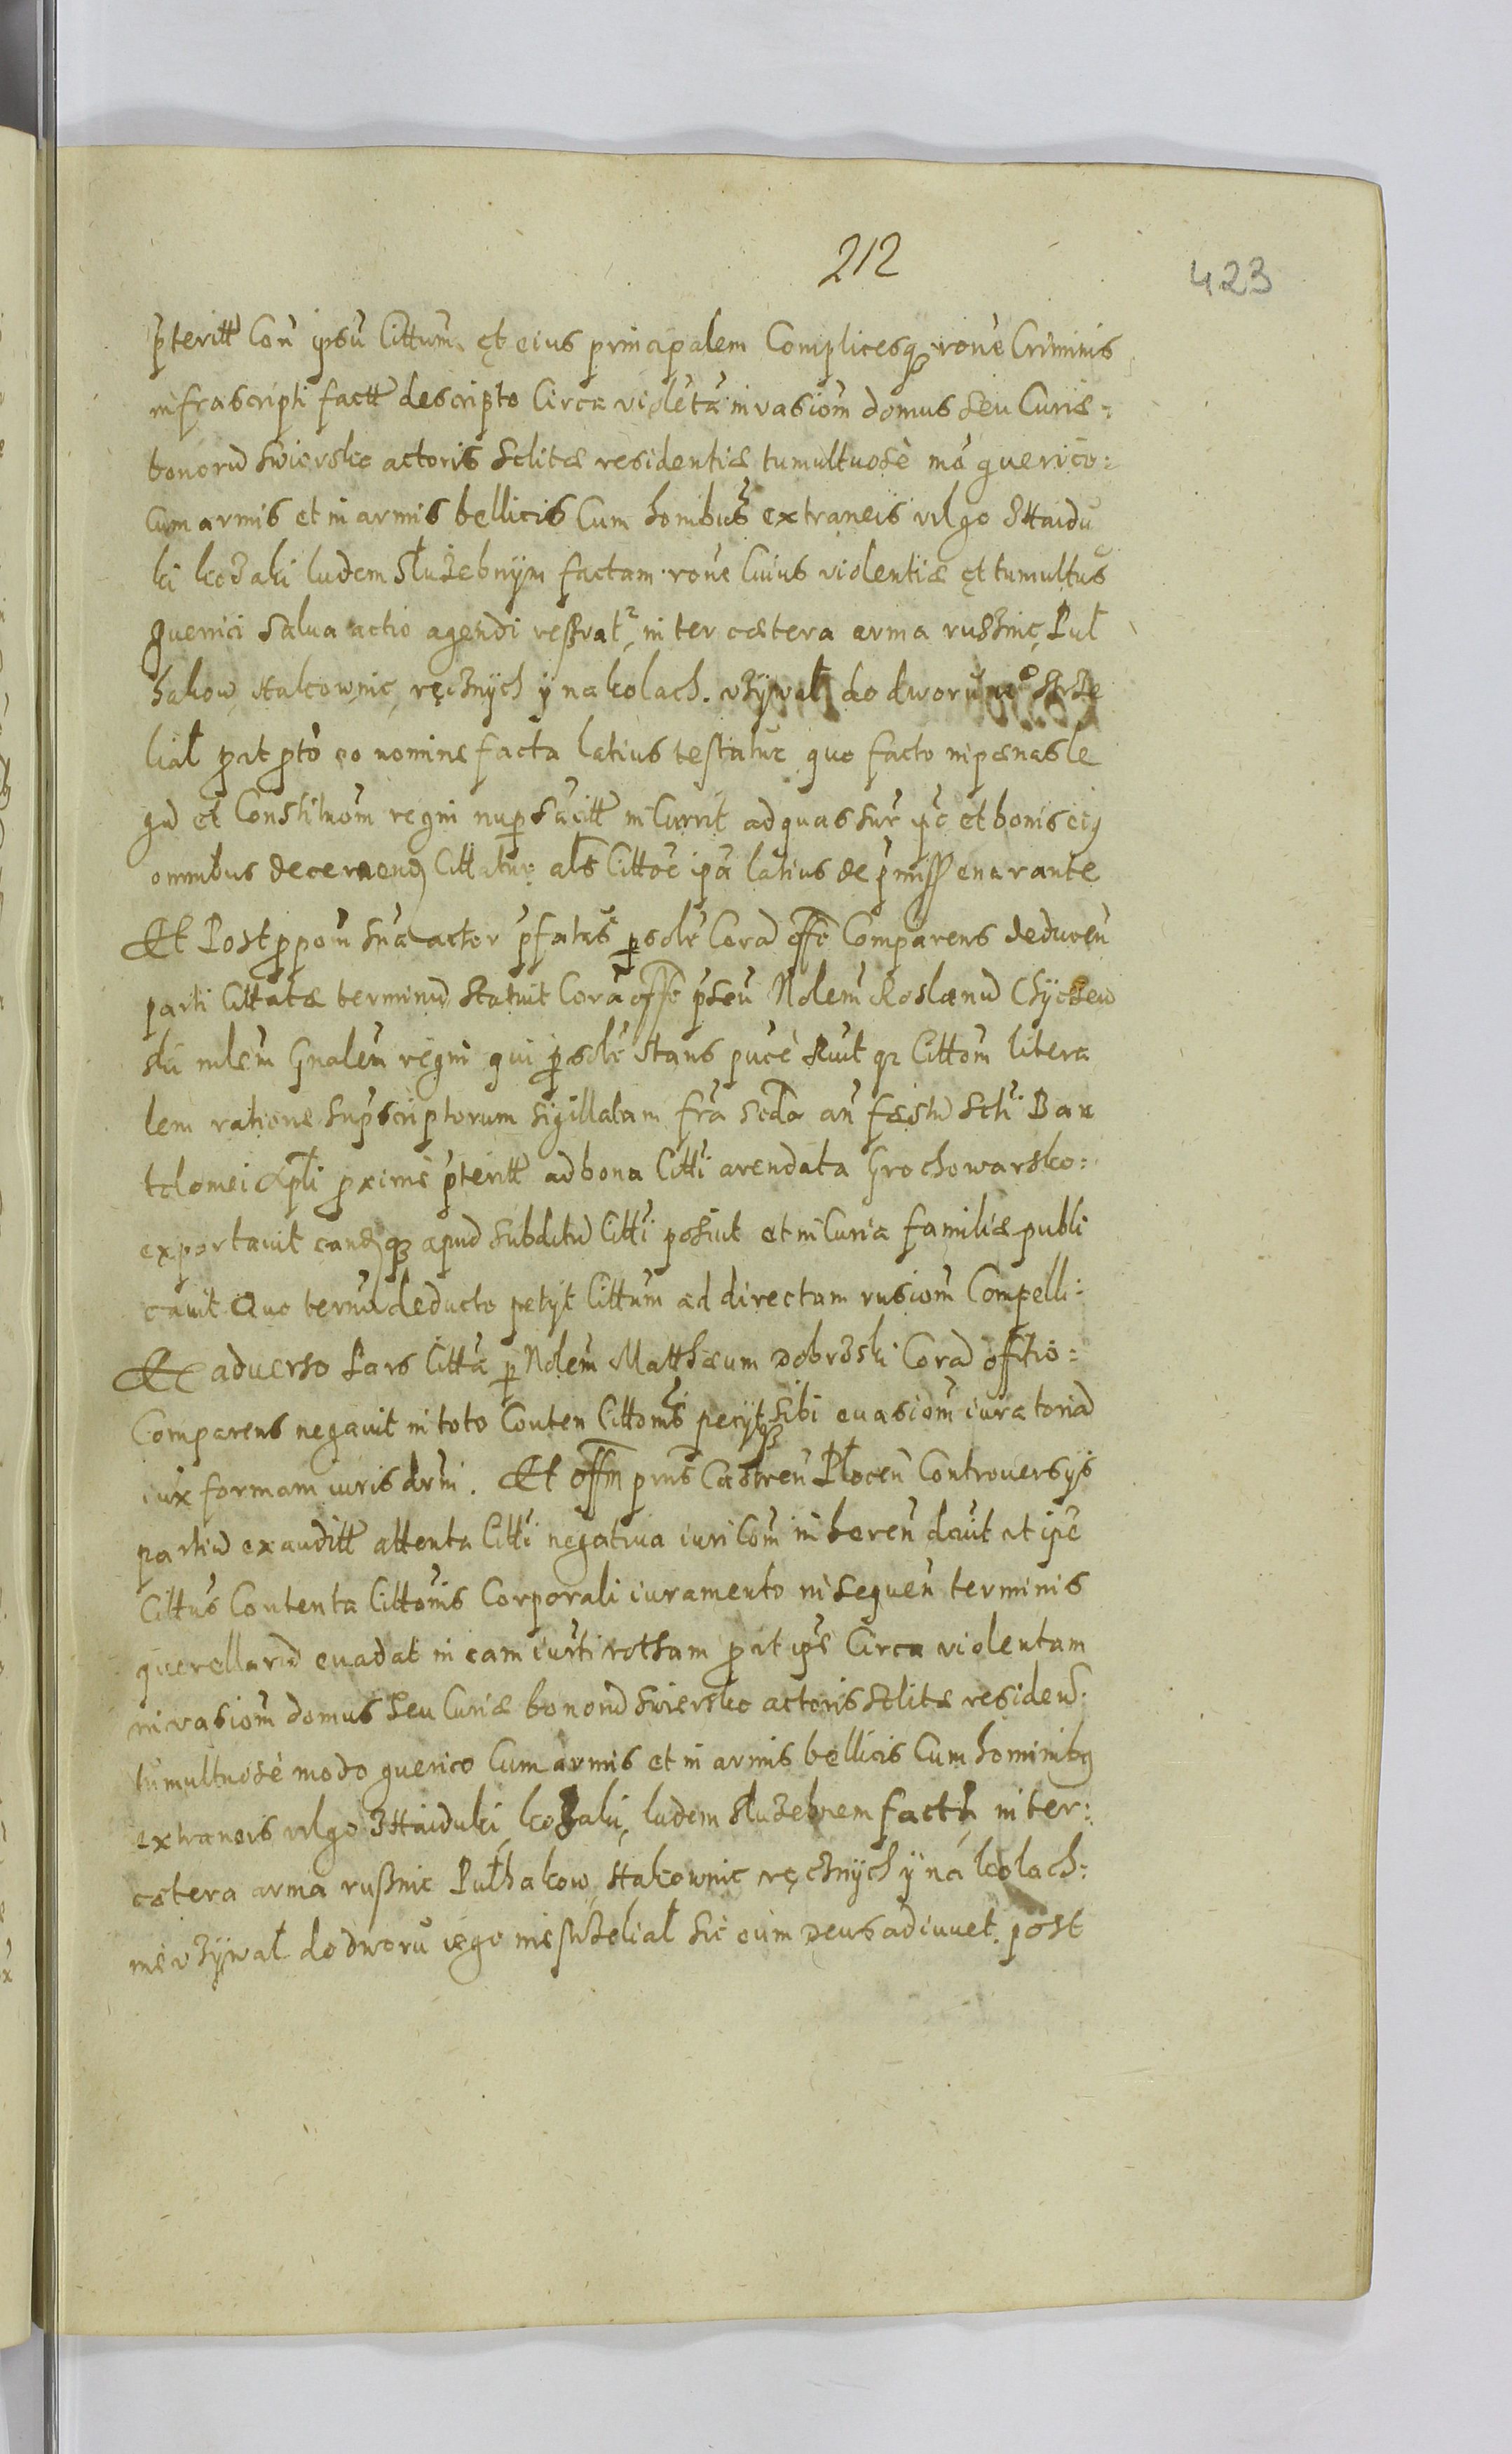 212
423
pteritt Con ipsu Cittum et eius principalem Complicesq rone Criminis
infrascripti factt descripto Circa violeta invasiom domus seu Curiæ=
bonoru Swiersko actoris Solitæ residentiæ tumultuose mo guerico=
Cum armis et in armis bellicis Cum honibus extraneis vulgo Haidu
ki kozaki ludem Służebnÿm factam rone Cuius violentiæ et tumultus
guerrici salua actio agendi resrvat inter cætera arma russnic, Puł
hakow Hakownic, ręcznÿch ÿ na kolach. vżÿwał do dworu strze
lial prt pto eo nomine facta latius testatur quo facto in pænas le
gu et Constituom regni nup sacitt incurrit ad quas sur ipe et bonis eig
omnibus decernend Cittatur als Cittoe ipa latius de pmiss enarante
Et Post ppom sua actor pfatus psolr Cora offo Comparens deducen
parti Cittatæ terminu statuit Cora offo pseu Nolem Roslanu Chÿczew
ski mlem Gnalem regni qui psolr stans puce recuit qr Cittom litera
lem ratione supscriptorum sigillatam fra scda an festu Scti Bar
tolomei Apli pxime pteritt ad bona Citti arendata Grochowarsko=
exportauit eandq apud subditu Citti posiut et in Curia familiæ publi
cauit Quo termi deducto petijt Cittum ad directam rusiom Compelli=
Ex aduerso Pars Citta p Nolem Matthæum Dobrzski Cora officio=
Comparens negauit in toto Conten Cittoms petijtq sibi euasiom iuratoria
iux formam iuris drni. Et offm pns Castren Płocen Controuersijs
partiu exauditt attenta Citti negatiua iuri Com inheren dcuit ut ipe
Cittus Contenta Cittonis Corporali iuramento in sequen terminis
querellaru euadat in eam iurti rotham prt ipe Circa violentam
invasiom domus seu Curiæ bonoru Swiersko actoris solitæ residen
tumultuose modo guerico Cum armis et in armis bellicis Cum hominibg
extraneis vulgo Haiduki, kozaki, ludem słuzebnem facta, inter=
cætera arma russnic Pułhakow, Hakownic ręcznÿch ÿ na kolach=
nie vżÿwał do dworu iego nie strzelial sic eum Deus adiuuet. post